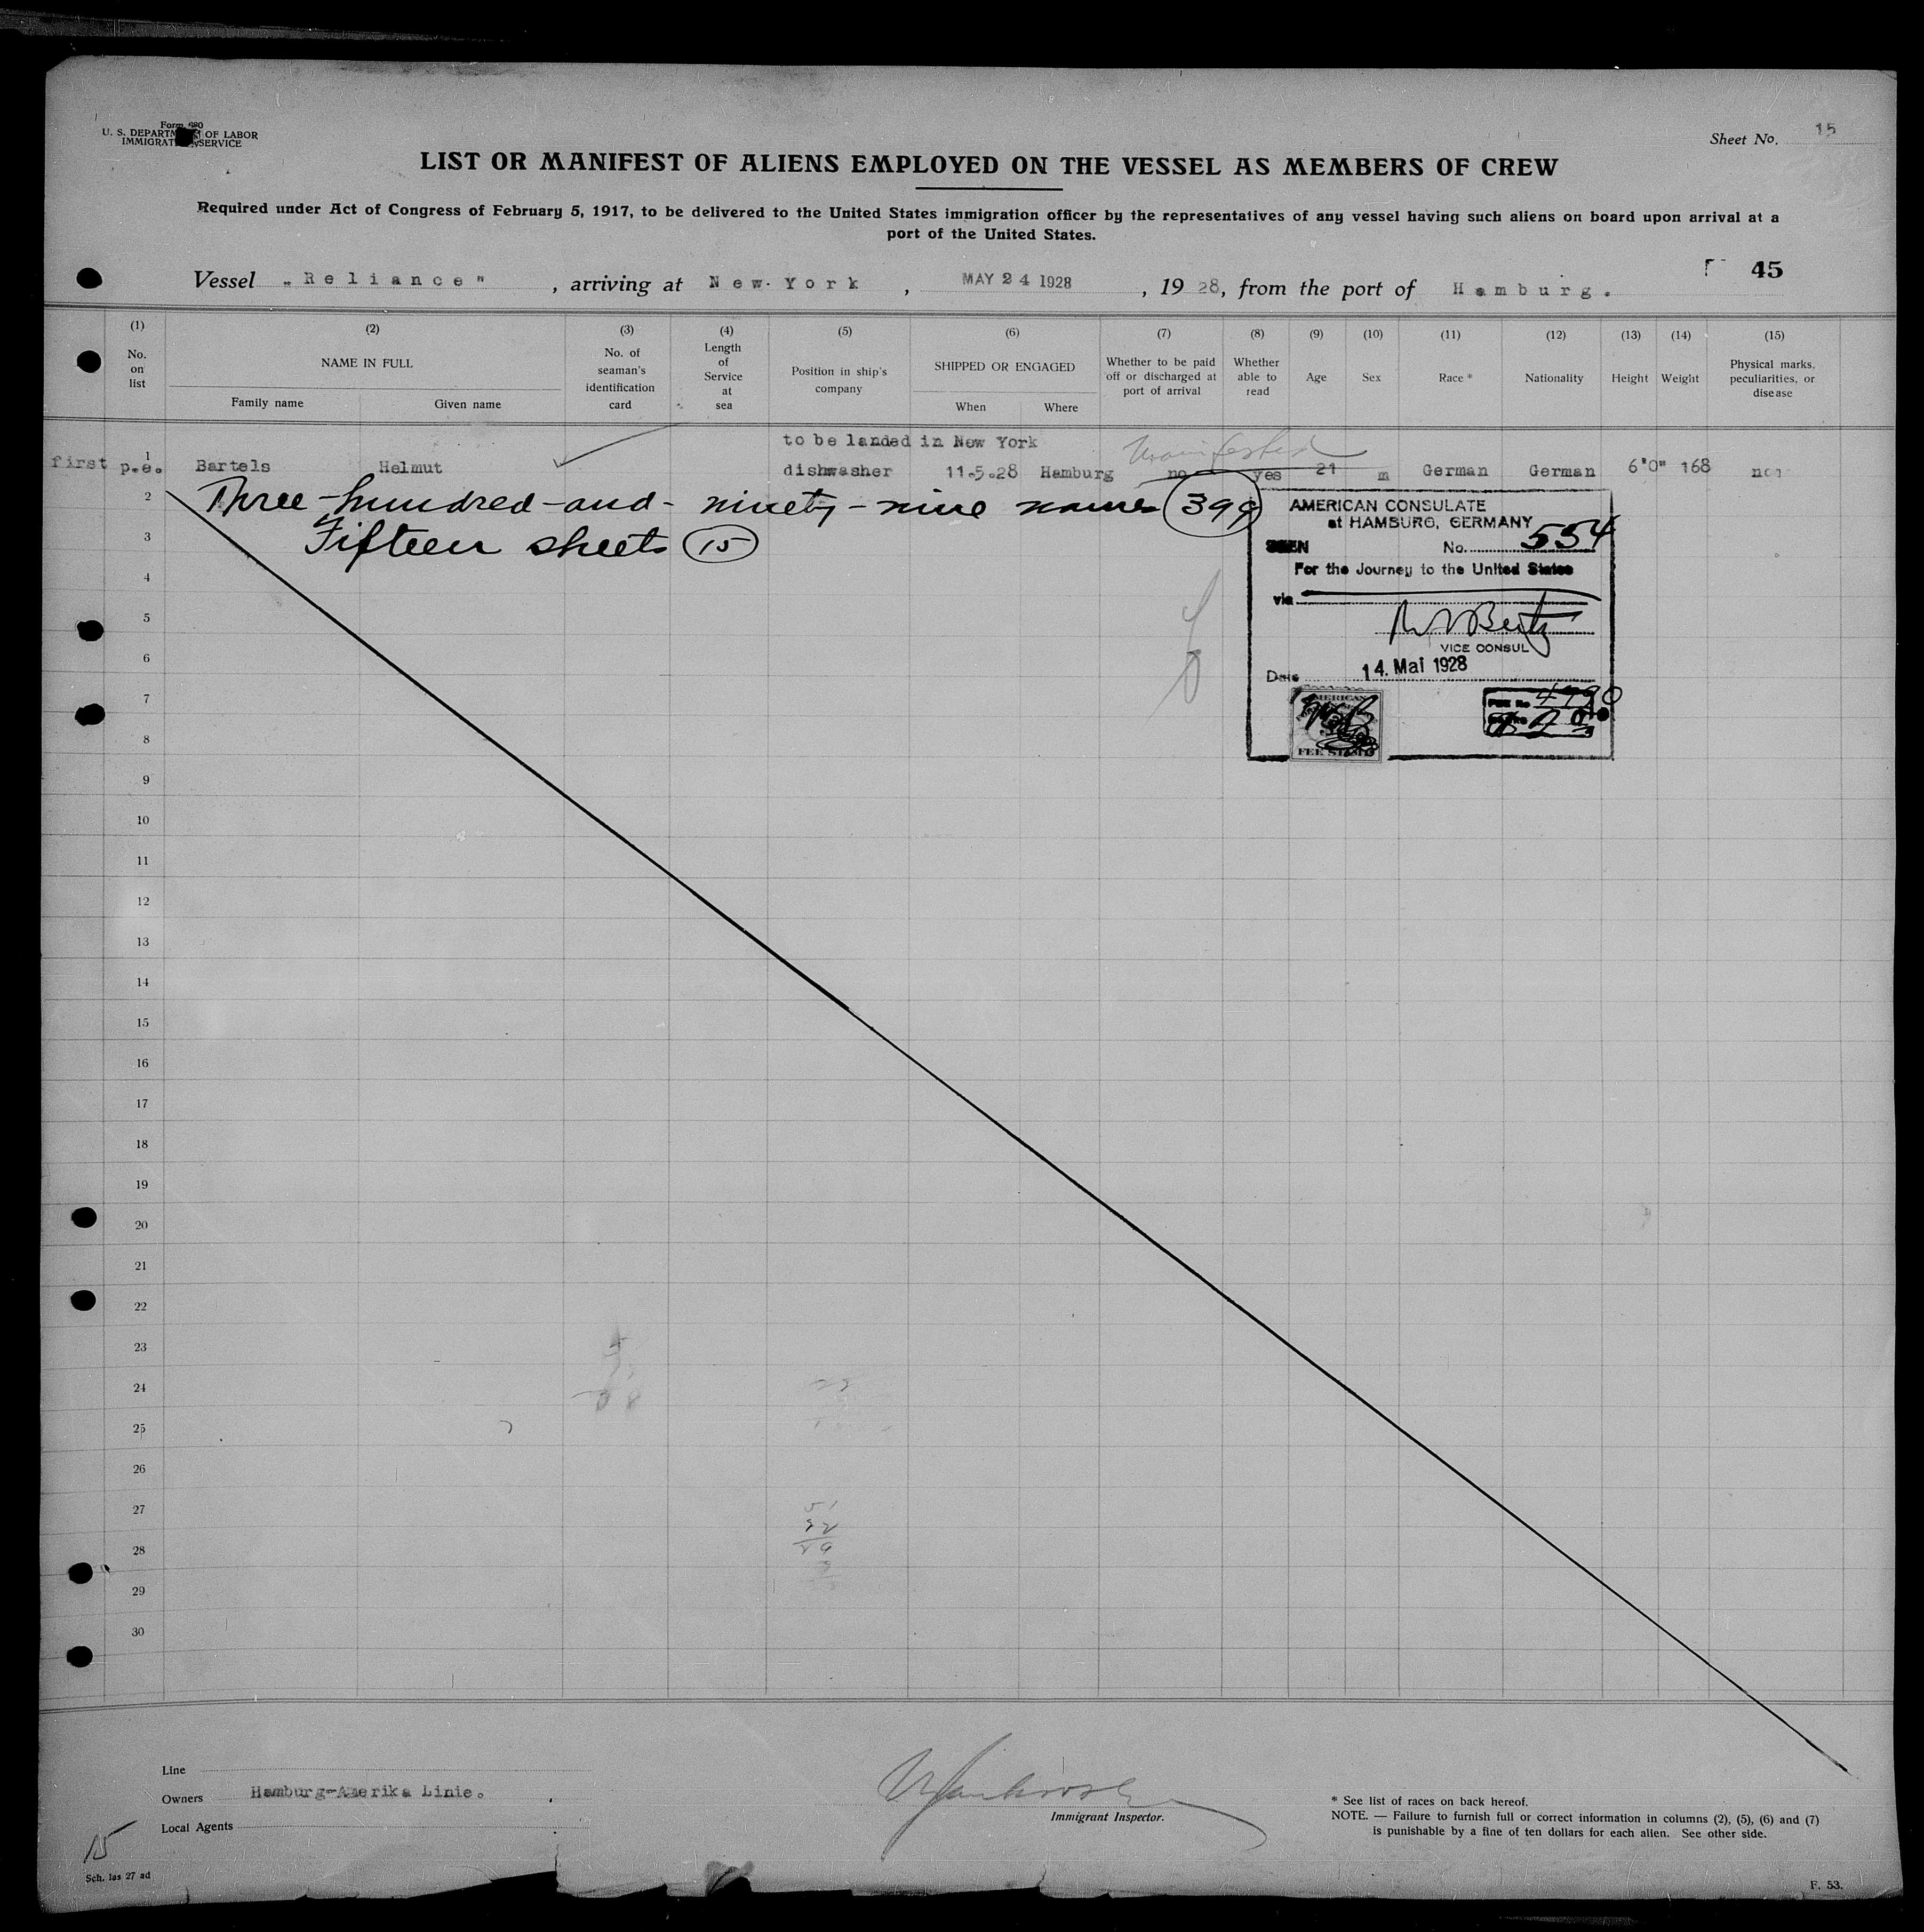 Form 680
U. S. DEPARTMENT OF LABOR
IMMIGRATION SERVICE
Sheet No. 15
LIST OR MANIFEST OF ALIENS EMPLOYED ON THE VESSEL AS MEMBERS OF CREW
Required under Act of Congress of February 5, 1917, to be delivered to the United States immigration officer by the representatives of any vessel having such aliens on board upon arrival at a
port of the United States.
45
Vessel „Reliance", arriving at New York, MAY 24 1928, 1928, from the port of Hamburg.
(1) (2) (3) (4) (5) (6) (7) (8) (9) (10) (11) (12) (13) (14) (15)
No. on list
NAME IN FULL
Family name Given name
No. of seaman's identification card
Length of Service at sea
Position in ship's company
SHIPPED OR ENGAGED
When Where
Whether to be paid off or discharged at port of arrival
Whether able to read
Age
Sex
Race *
Nationality
Height
Weight
Physical marks, peculiarities, or disease
to be landed in New York
Manifested
first p.e. 1 Bartels Helmut dishwasher 11.5.28 Hamburg no yes 21 m German German 6'0" 168
2 Three-hundred-and-ninety-nine names 399
3 Fifteen sheets 15
AMERICAN CONSULATE
at HAMBURG, GERMANY
SEEN No. 554
For the Journey to the United States
via
VICE CONSUL
Date 14. Mai 1928
AMERICAN
FEE STAMP
4
5
6
7
8
9
10
11
12
13
14
15
16
17
18
19
20
21
22
23
24
25
26
27
28
29
30
Line
Owners Hamburg-Amerika Linie.
Local Agents
Immigrant Inspector.
* See list of races on back hereof.
NOTE. — Failure to furnish full or correct information in columns (2), (5), (6) and (7)
is punishable by a fine of ten dollars for each alien. See other side.
15
Sch. las 27 ad
F. 53.